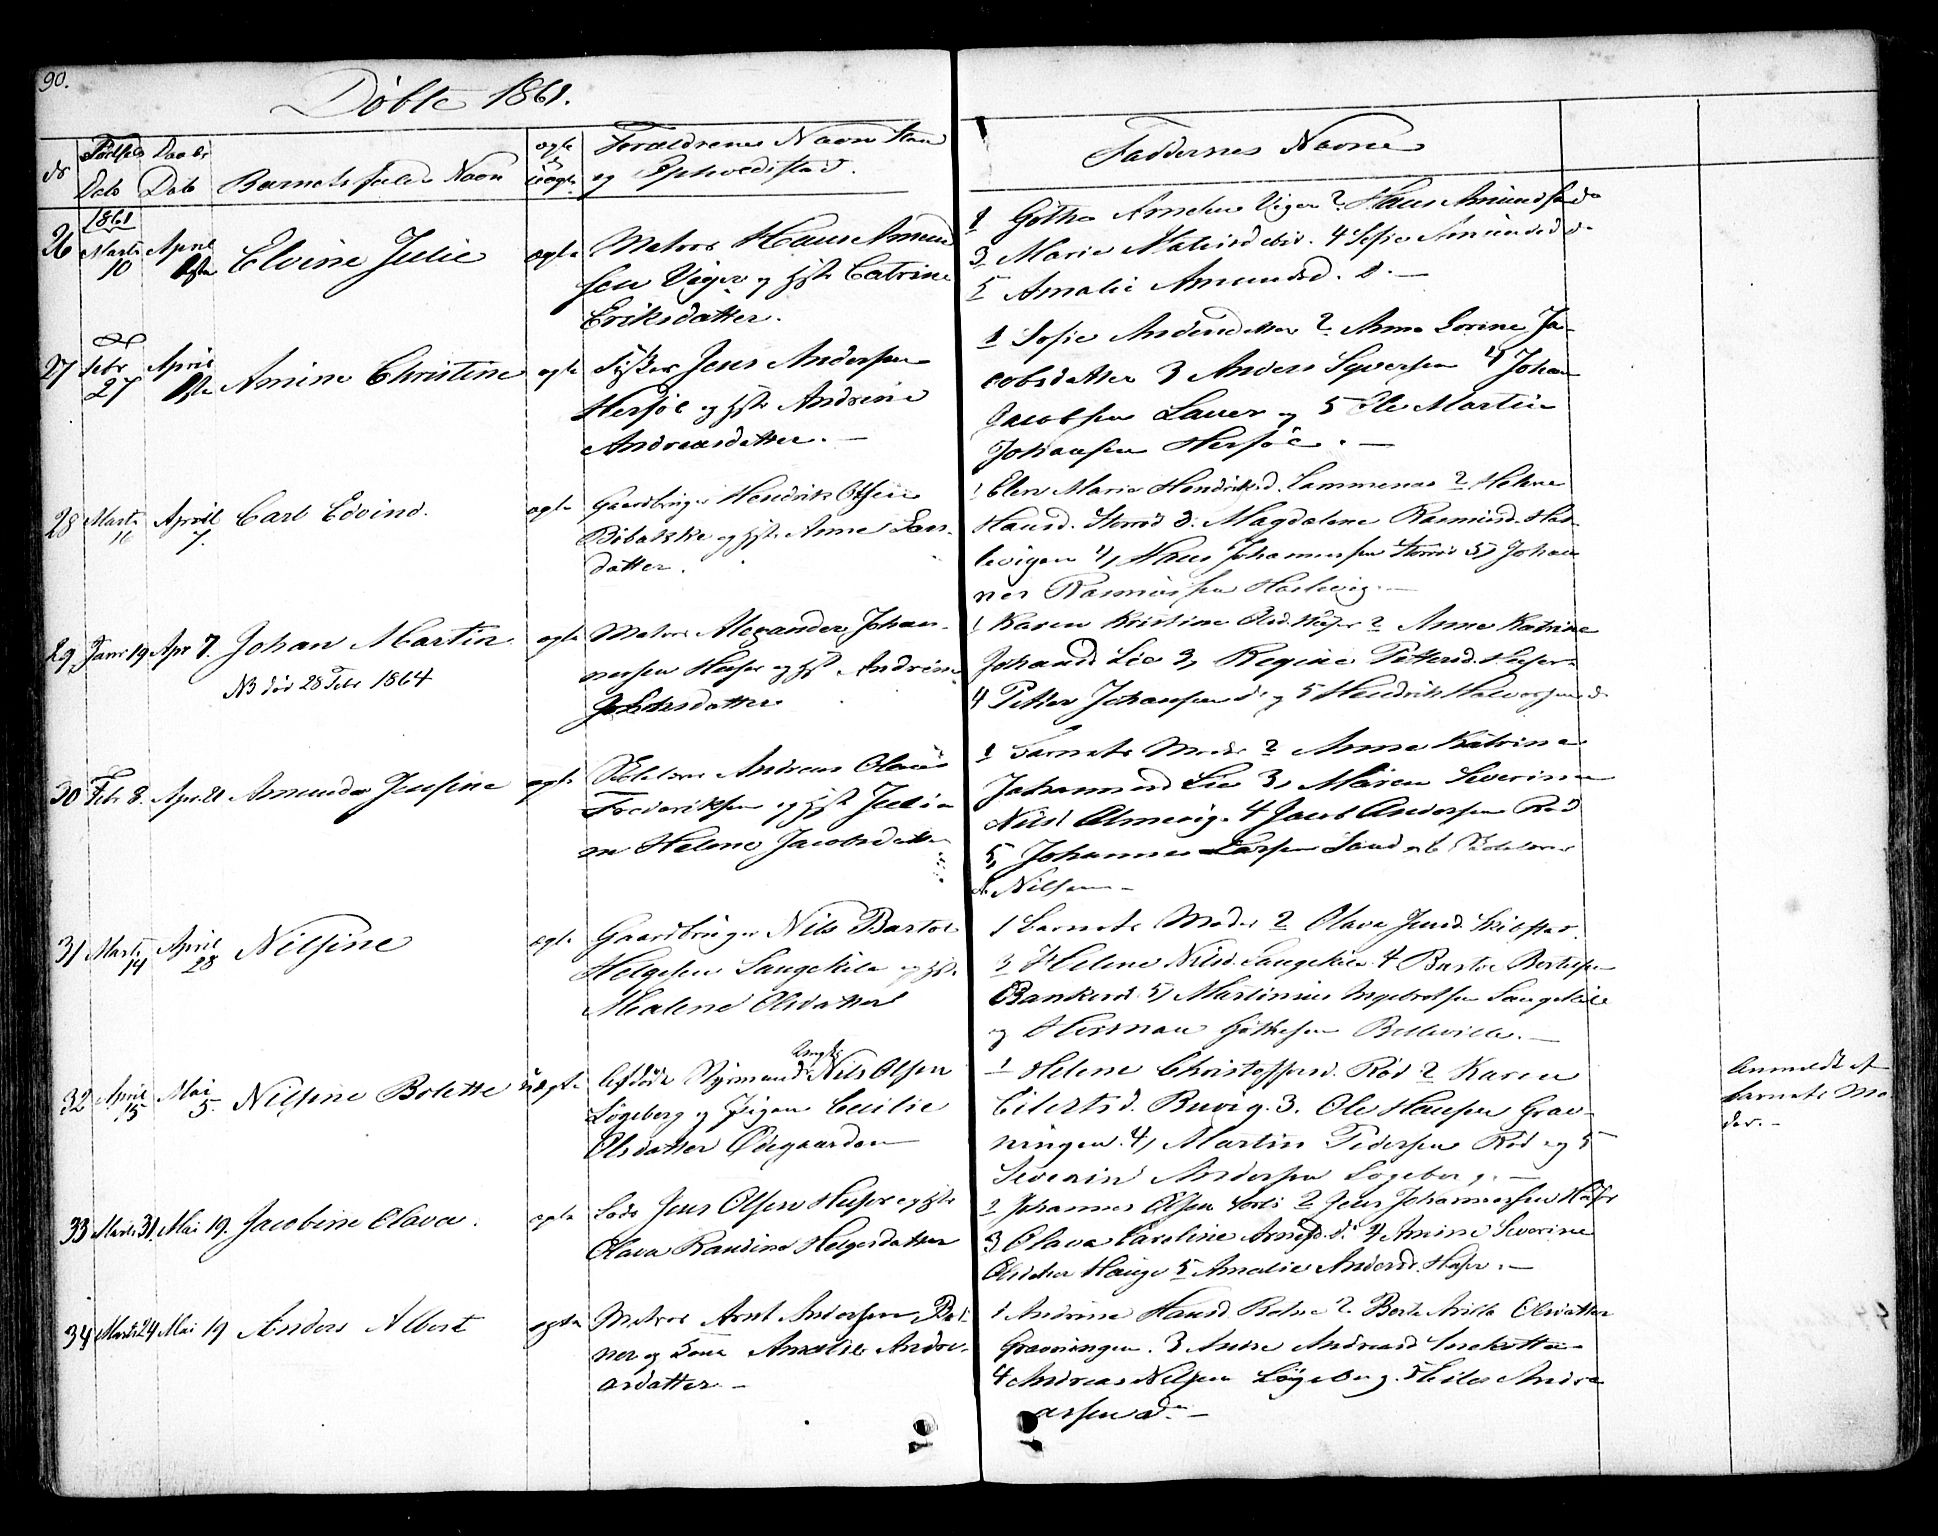 90.
Døbte 1861.
Nr
Fødsels Dato
Daabs Dato
Barnets fulde Navn
ægte el uægte
Forældrenes Navn Stand
og Opholdsted.
Faddernes Navne
1861
26 Marts 10 April 1ste Elvine Julie ægte
Matros Hans Amund
sen Viger og Hst Catrine
Eriksdatter.
1 Gothe Amalie Viger 2 Hans Amundsen do
3 Maria 4 Sofie Amundsd do
5 Amalie Amundsd. d. —
27 Febr 27 April 1ste Amine Christine ægte
Fisker Jens Andersen
Herføl og Hst Andrine
Andreasdatter. —
1 Sofie Andersdatter 2 Anne Lorine Ja-
cobsdatter 3 Anders Syversen 4 Johan
Jacobsen Lauer og 5 Ole Martin
Johansen Herføl. —
28 Marts 11 April 7. Carl Edvind. ægte
Gaardbruger Hendrik Olsen
Bibalkke og Hst Anne Lars-
datter.
1 Elen Maria Hendriksd. 2 Helene
Hansd. Storrød 3. Magdalene Rasmusd. Has-
levigen 4, Hans Johannessen Storrød 5, Johan
nes Rasmussen Haslevig. —
29 Janr 19 Apr 7. Johan Martin ægte
NB død 28 Febr 1864
Matros Alexander Johan-
nessen Huser og Hst Andrine
Jakobsdatter
1 Karen Kristine Olsd. Huser 2 Anne Katrine
Johansd Lie 3, Regine Pettersd. Huser
4 Petter Johansen do og 5 Hendrik Halvorsen do
30 Febr 8. Apr. 21 Amunda Josefine ægte
Andreas Olaus
Frederiksen og Hst Julia
ne Helene Jacobsdatter
1 Barnets Moder 2 Anne Katrine
Johannesd Lie 3, Maren Severine
Nilsd Ulmevig. 4 Jacob Andersen Rød
5, Johannes Larsen Sand
Nilsen —
31 Marts 14 April 28 Nilsine ægte
Gaardbruger Nils Bartol
Helgesen Saugekile og Hst
Malene Olsdatter
1 Barnets Moder 2 Olava Jensd.
3 Helene Nilsd. Saugekile 4 Bartol Bertelsen
Bankerød 5, Martinius Ingebretsen Saugekile
og Herman Gothesen Belleville. —
32 April 15 Mai 5. Nilsine Bolette uægte
Afdøde Styrmand Nils Olsen
Løgeberg og Pigen Cecilie
Olsdatter Ødegaarden
1 Helene Christoffersd. Rød 2 Karen
Eilertsd. Buvig. 3. Ole Hansen Grav-
ningen. 4, Martin Pedersen Rød og 5
Severin Andersen Løgeberg. —
Anmeldt af
barnets Mo
der. —
33 Marts 31. Mai 19. Jacobine Olava. ægte
Lods Jens Olsen Huser og Hst
Olava Randine Helgesdatter
1 Johannes Olsen 2 Jens Johannessen Huser
3 Olava Caroline Arnesd. do 4 Amine Severine
Olsdatter Hauge 5 Amalie Andersd. Huser. —
34 Marts 24 Mai 19 Anders Albert ægte
Matros Arnt Andersen
ner og Kone Amalie Andre-
asdatter —
1 Andrine Hansd. 2 Berte Milla Olsdatter
Gravningen. 3 Anne Andreasd
4 Andreas Nilsen Løgeberg. 5 Andre
assen do —